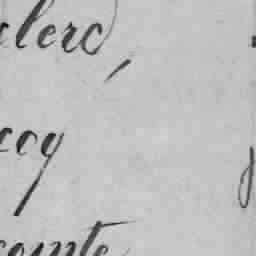 clerc,
coq
comte